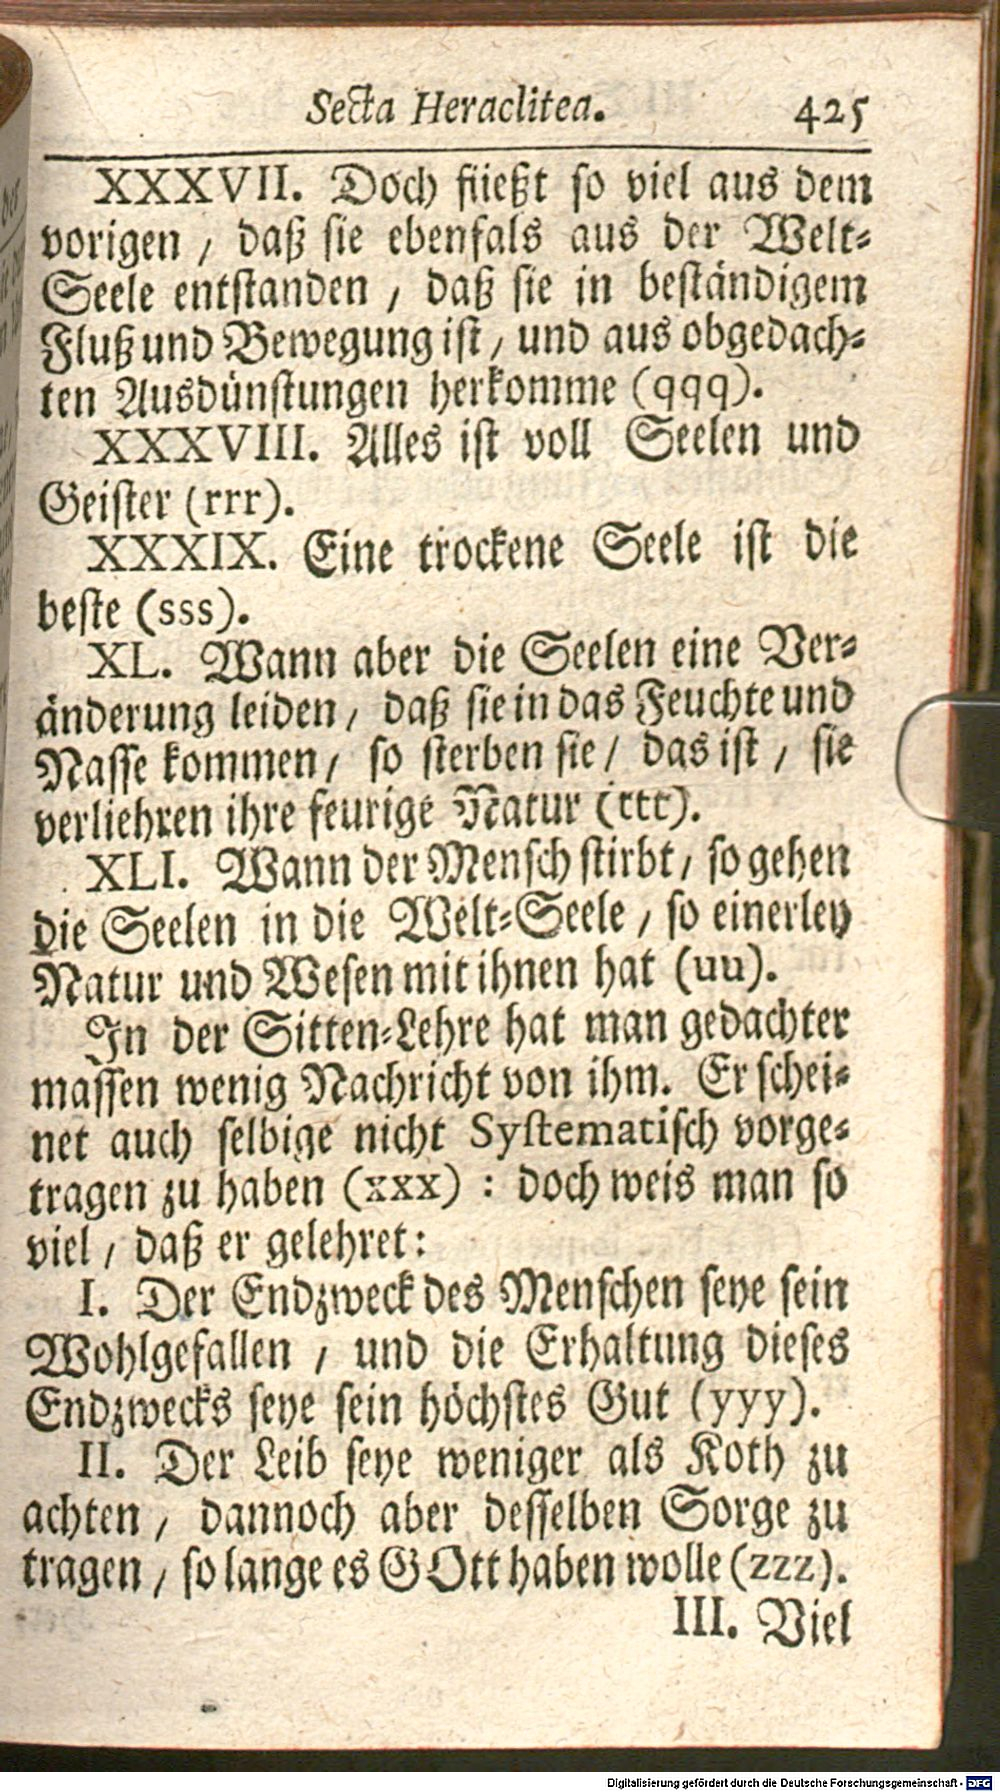 Secta Heraclitea. 425
XXXVII. Doch fließt so viel aus dem
vorigen / daß sie ebenfals aus der Welt-
Seele entstanden / daß sie in beständigem
Fluß und Bewegung ist / und aus obgedach-
ten Ausdünstungen herkomme (qqq).
XXXVIII. Alles ist voll Seelen und
Geister (rrr).
XXXIX. Eine trockene Seele ist die
beste (sss).
XL. Wann aber die Seelen eine Ver-
änderung leiden / daß sie in das Feuchte und
Nasse kommen / so sterben sie / das ist / sie
verliehren ihre feurige Natur (ttt).
XLI. Wann der Mensch stirbt / so gehen
die Seelen in die Welt-Seele / so einerley
Natur und Wesen mit ihnen hat (uu).
In der Sitten-Lehre hat man gedachter
massen wenig Nachricht von ihm. Er schei-
net auch selbige nicht Systematisch vorge-
tragen zu haben (xxx) : doch weis man so
viel / daß er gelehret:
I. Der Endzweck des Menschen seye sein
Wohlgefallen / und die Erhaltung dieses
Endzwecks seye sein höchstes Gut (yyy).
II. Der Leib seye weniger als Koth zu
achten / dannoch aber desselben Sorge zu
tragen / so lange es GOtt haben wolle (zzz).
III. Viel
Digitalisierung gefördert durch die Deutsche Forschungsgemeinschaft - DFG